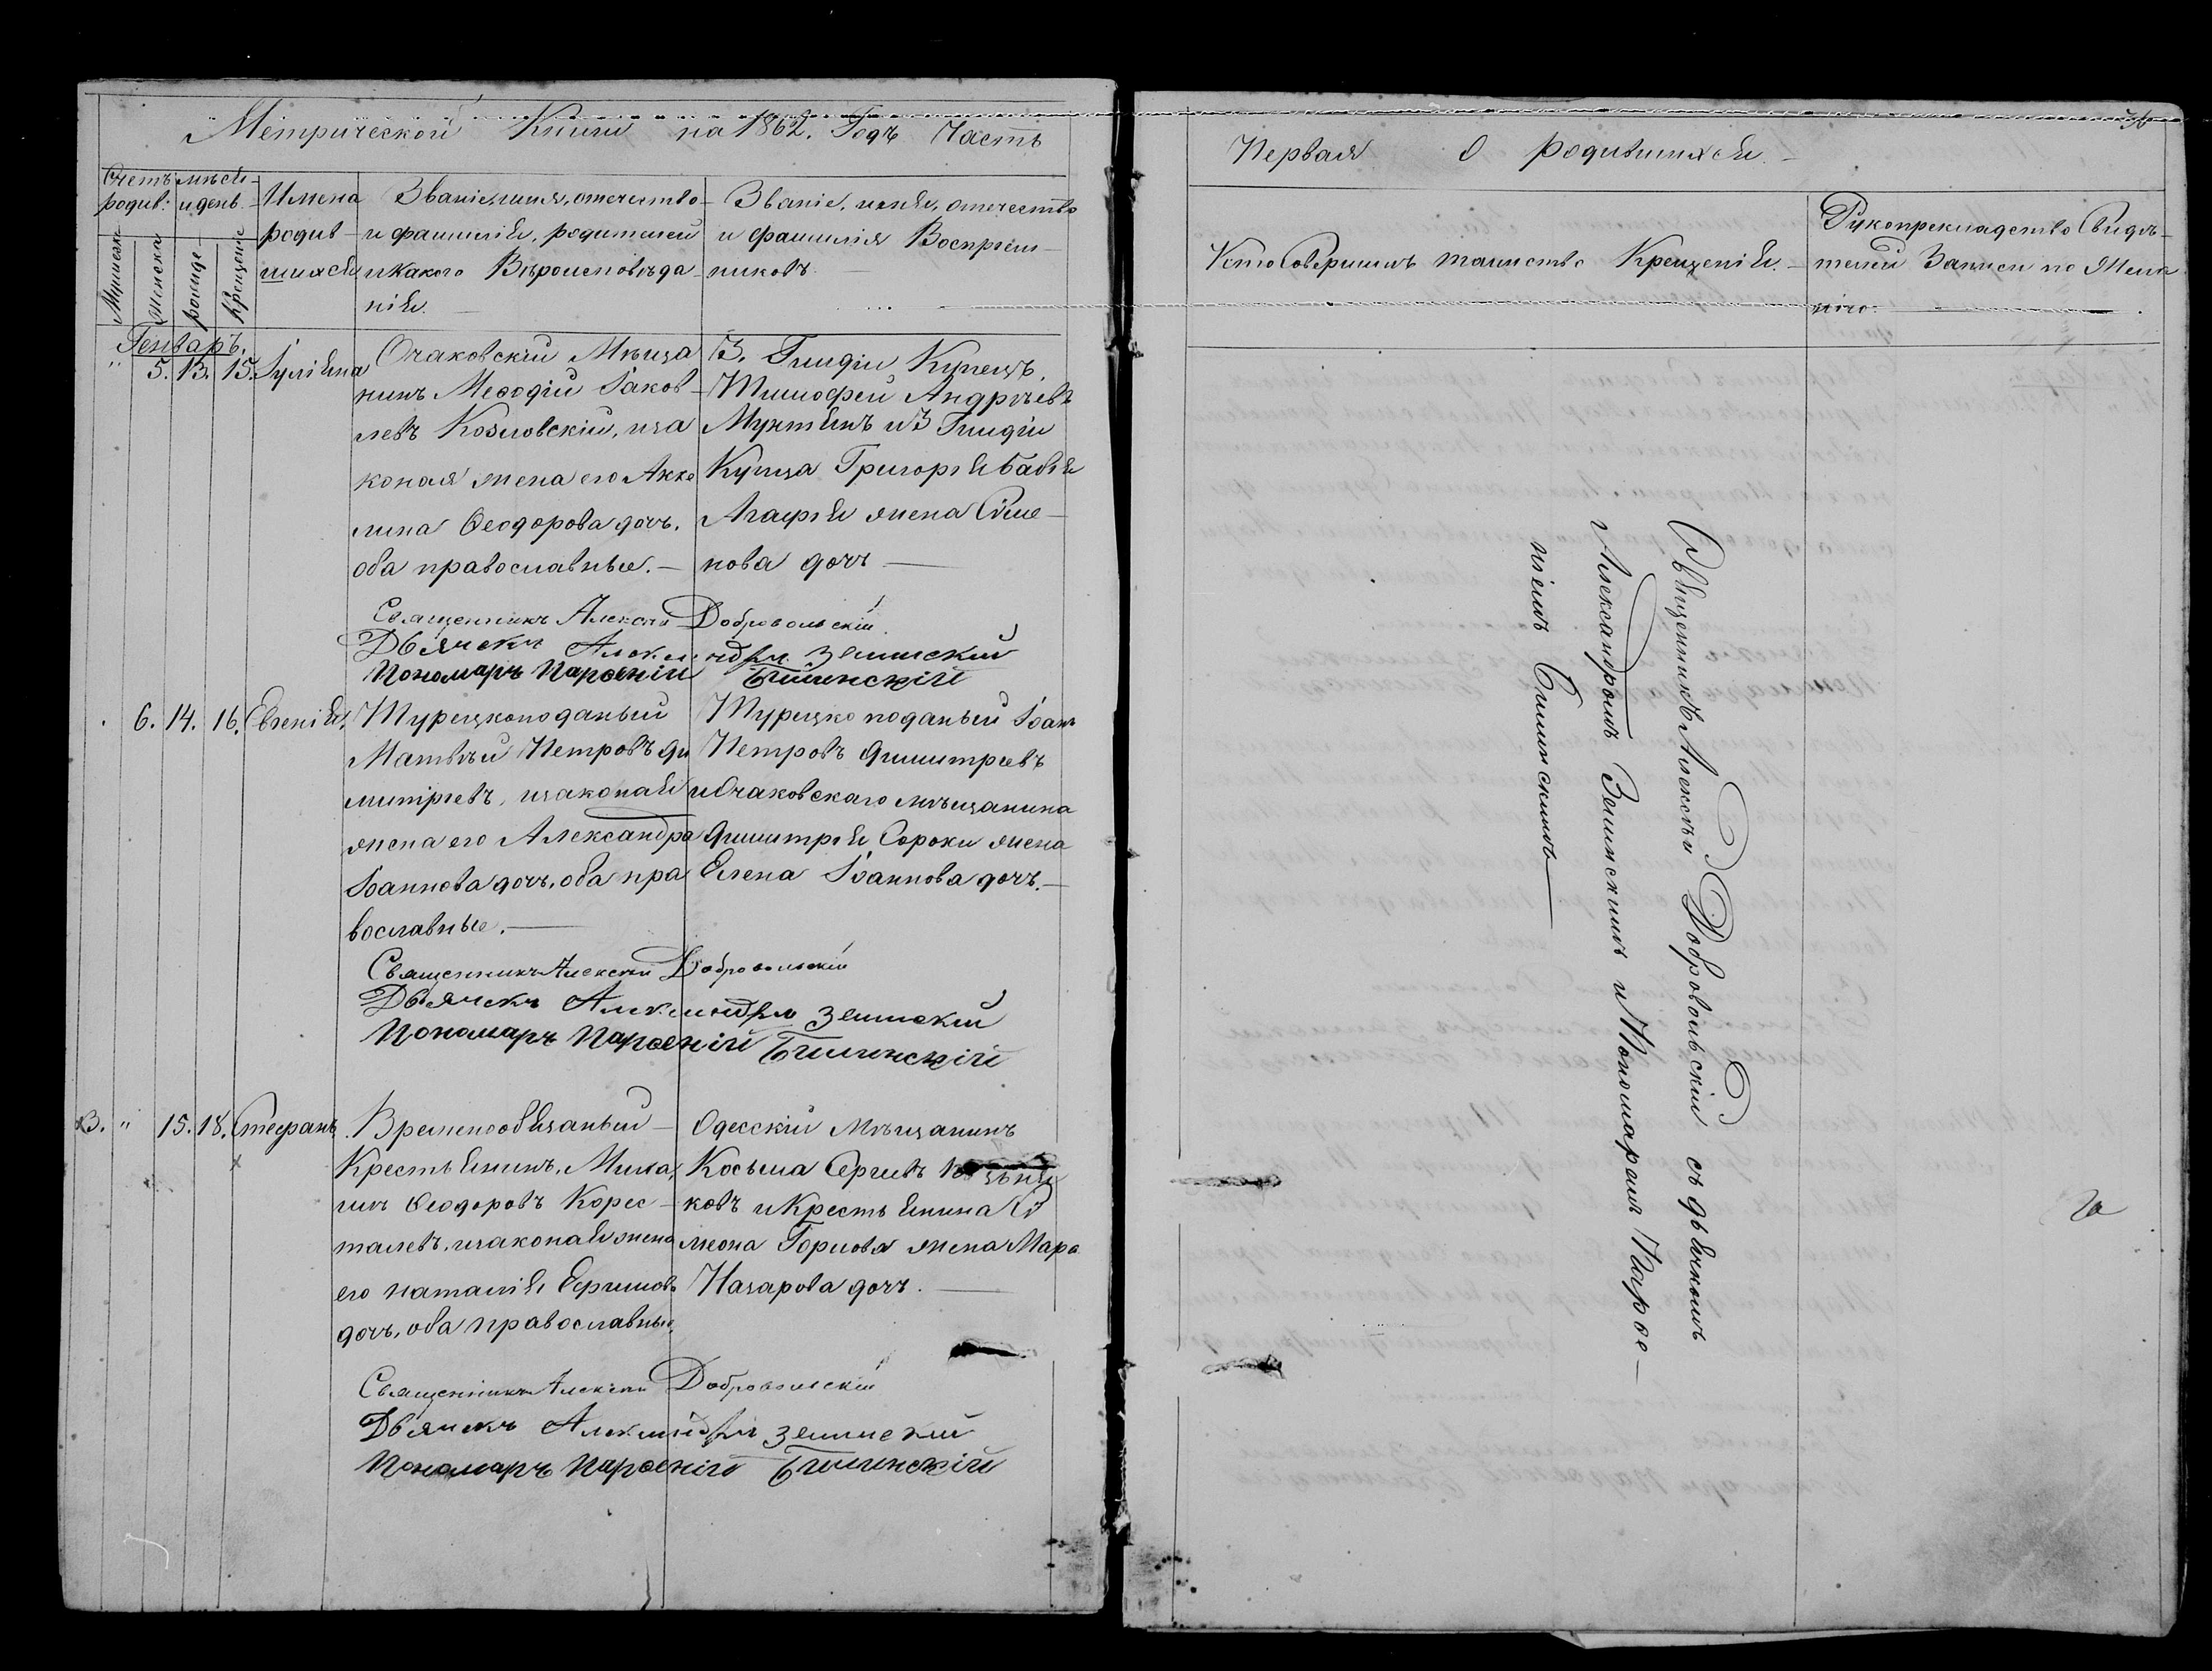 Метрической Книги на 1862. Годъ Часть
Счетъ родив:
мѣся- и день
Мужеска
Женска
рожде-
Крещение
Имена родив-шихся
Званіе, имя, отечество
и фамилія, родителей
и какого Вѣроисповѣда-
нія.
Званіе, имя, отечество
и фамилія Воспріем-
никовъ.
Генварь.
" 5. 13. 15. Іуліяна
Очаковскій Мѣща
нинъ Меѳодій Іаков-
левъ Козловскій, иза
коная жена его Акке
лина Ѳеодорова дочь.
оба православные.—
3. Гилдіи Купецъ,
Тимофей Андрѣевъ
Муктянъ и 3 Гилдіи
Купца Григорія Бабія
Агафія жена Симе-
нова дочь —
Священникъ Алексѣй Добровольскій
Дьячекъ Александръ Зелинский
Пономарь Парѳеній Билинскій
6. 14. 16. Евгенія,
Турецкоподаный
Матвѣй Петровъ Ди
митріевъ, изаконая
жена его Александра
Іоаннова дочь, оба пра
вославные.—
Турецко поданый Іоанъ
Петровъ Димитріевъ
и Очаковскаго мѣщанина
Димитрія Сороки жена
Елена Іоаннова дочь.—
Священникъ Алексѣй Добровольскій
Дьячекъ Александръ Зелинский
Пономарь Парѳеній Билинскій
3. " 15. 18. Стефанъ
Временообязаный
Крестьянинъ, Миха,
илъ Ѳеодоровъ Корес-
талевъ, изаконая жена
его Наталія Ефимова
дочь, оба православные,
Одесскій Мѣщанинъ
Косьма Сергіевъ
ковъ и Крестьянина Си
меона Горлова жена Мара
Назарова дочь. —
Священникъ Алексѣй Добровольскій
Дьячекъ Александръ Зелинский
Пономарь Парѳеній Билинскій
Первая О родившихся.
Кто Совершилъ таинство Крещенія.
Рукоприкладство Свидѣ-
телей Записи по Жела
нію.
Священникъ Алексѣй Добровольскій съ дьячкомъ
Александромъ Зелинскимъ и Пономаремъ Парѳе-
ніемъ Билинскимъ —